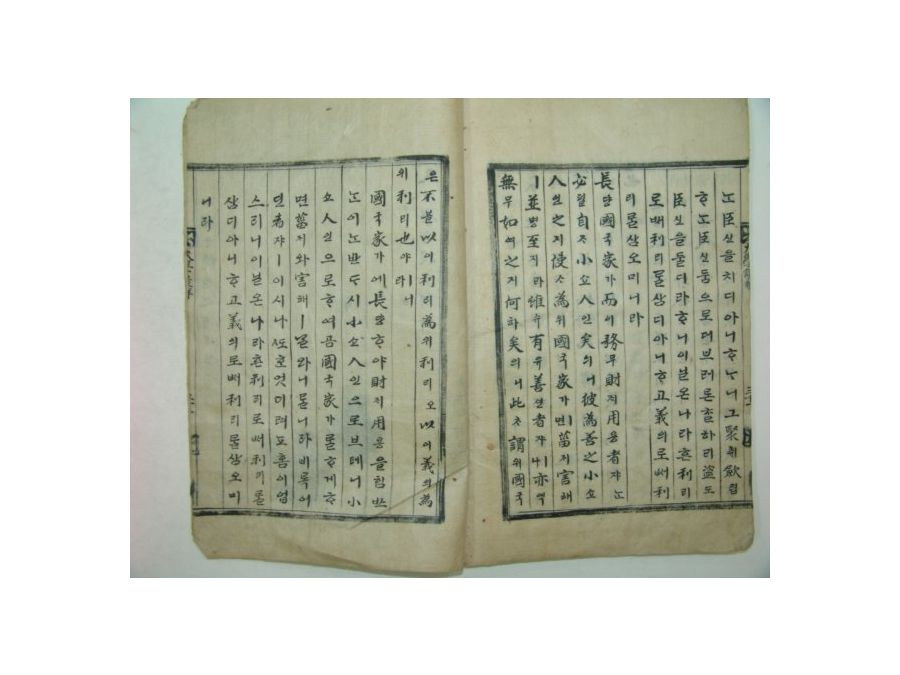 노臣신을치디아니ᄒᆞᄂᆞ니그聚취歛렴
ᄒᆞ노臣신둠으로더브러론ᄎᆞᆯ하리盜도
臣신을둘디라ᄒᆞ니이닐온나라흔利리
로ᄡᅥ利리ᄅᆞᆯ삼디아니ᄒᆞ고義의로ᄡᅥ利
리ᄅᆞᆯ삼오미니라
長댱國국家가而이務무財ᄌᆡ用용者쟈ᄂᆞᆫ
必필自ᄌᆞ小쇼人인矣의니彼為善之小쇼
人인之지使ᄉᆞ為위國국家가면菑ᄌᆡ害해
ㅣ並병至지라維유有유善션者쟈ㅣ나亦역
無무如여之지何하矣의니此ᄎᆞ謂위國국
은不블以이利리為위利리오以이義의為
위利리也야ㅣ니라
國국家가에長댱ᄒᆞ야財ᄌᆡ用용을힘ᄡᅳ
노이ᄂᆞᆫ반ᄃᆞ시小쇼人인으로브테니小
쇼人인으로ᄒᆞ여곰國국家가ᄅᆞᆯᄒᆞ게ᄒᆞ
면菑ᄌᆡ와害해ㅣᄀᆞᆯ와니르니라비록어
딘者쟈ㅣ이시나ᄯᅩᄒᆞᆫ엇디려뇨홈이업
스리니이닐온나라흔利리로ᄡᅥ利리ᄅᆞᆯ
삼디아니ᄒᆞ고義의로ᄡᅥ利리ᄅᆞᆯ삼오미
니라